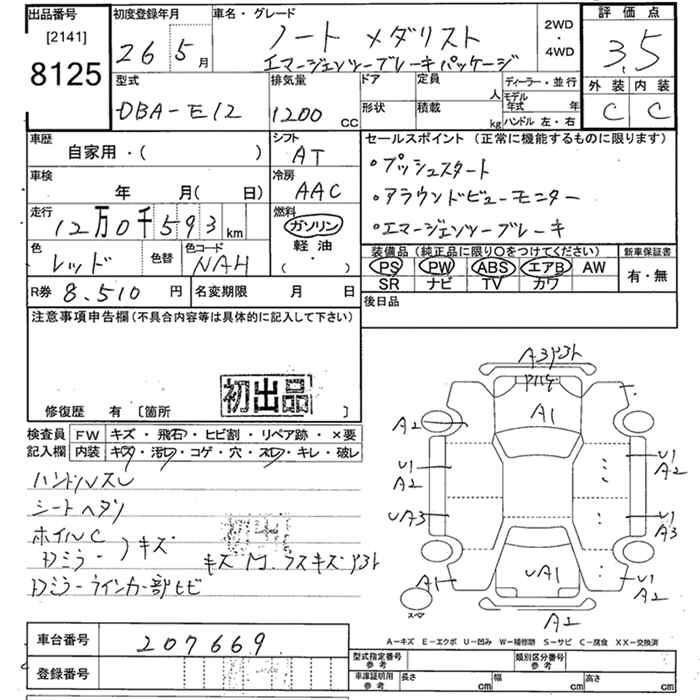 出品番号
[2141]
8125
初度登録年月
26 5月
車名・グレード
ノート メダリスト
エマージェンシーブレーキパッケージ
2WD
・
4WD
評価点
3.5
外装 内装
C C
型式
DBA-E12
排気量
1200 CC
ドア
形状
定員
人
積載
kg
ディーラー・並行
モデル年式 年
ハンドル 左・右
車歴
自家用・( )
シフト
AT
車検
年 月( 日)
冷房
AAC
走行
12万0千593km
燃料
ガソリン
軽油
( ・ )
色
レッド
色替
色コード
NAH
R券 8,510 円
名変期限 月 日
セールスポイント (正常に機能するものに限ります)
・プッシュスタート
・アラウンドビューモニター
・エマージェンシーブレーキ
装備品 (純正品に限り○をつけてください)
PS PW ABS エアB AW
SR ナビ TV カワ
新車保証書
有・無
後日品
注意事項申告欄 (不具合内容等は具体的に記入して下さい)
初出品
修復歴 有 [箇所 ]
検査員
記入欄
FW キズ・飛石・ヒビ割・リペア跡・×要
内装 キズ・汚レ・コゲ・穴・スレ・キレ・破レ
ハンドルスレ
シートヘタリ
ホイルC
Dミラーキズ
Dミラーウインカー部ヒビ
A1
A2
U1
A2
UA3
A1
UA1
U1
A2
U1
A3
U1
A2
A2
スペア
A-キズ E-エクボ U-凹み W-補修跡 S-サビ C-腐食 XX-交換済
車台番号
207669
登録番号
型式指定番号
参考
類別区分番号
参考
車庫証明用
参考
長さ cm
幅 cm
高さ cm